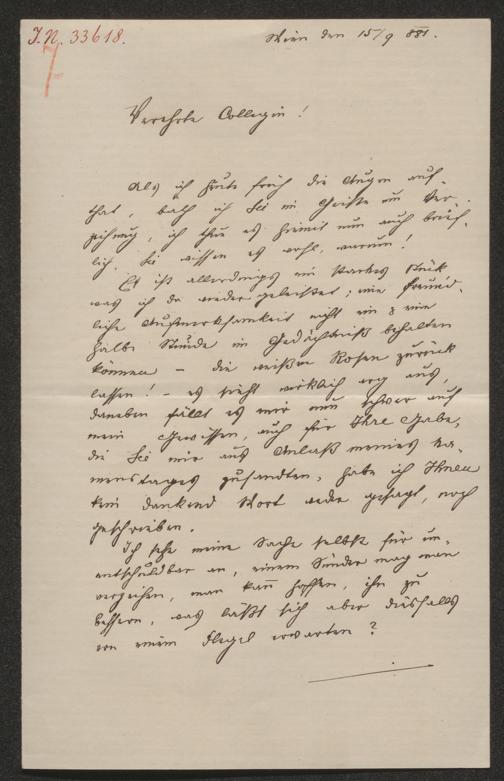 J.N. 33618.
Wien den 15/9 881.
Verehrte Collegin!
Als ich heute früh die Augen auf-
that, bath ich Sie im Geiste um Ver-
zeihung, ich thue es hiemit nun auch brief-
lich. Sie wissen es wohl, warum!
Es ist allerdings ein starkes Stück
was ich da wieder geleistet; eine freund-
liche Aufmerksamkeit nicht ein &
halbe Stunde im Gedächtniß behalten
können – die weißen Rosen zurück
lassen! – es sieht wirklich arg aus,
daneben fällt es mir nun schwer auf
mein Gewissen, auch für Ihre Gabe,
die Sie mir aus Anlaß meines Na-
menstages zusandten, habe ich Ihnen
kein dankend Wort weder gesagt, noch
geschrieben.
Ich sehe meine Sache selbst für un-
entschuldbar an, einem Sünder mag man
verzeihen, man kann hoffen, ihn zu
bessern, was läßt sich aber diesfalls
von einem Flegel erwarten?